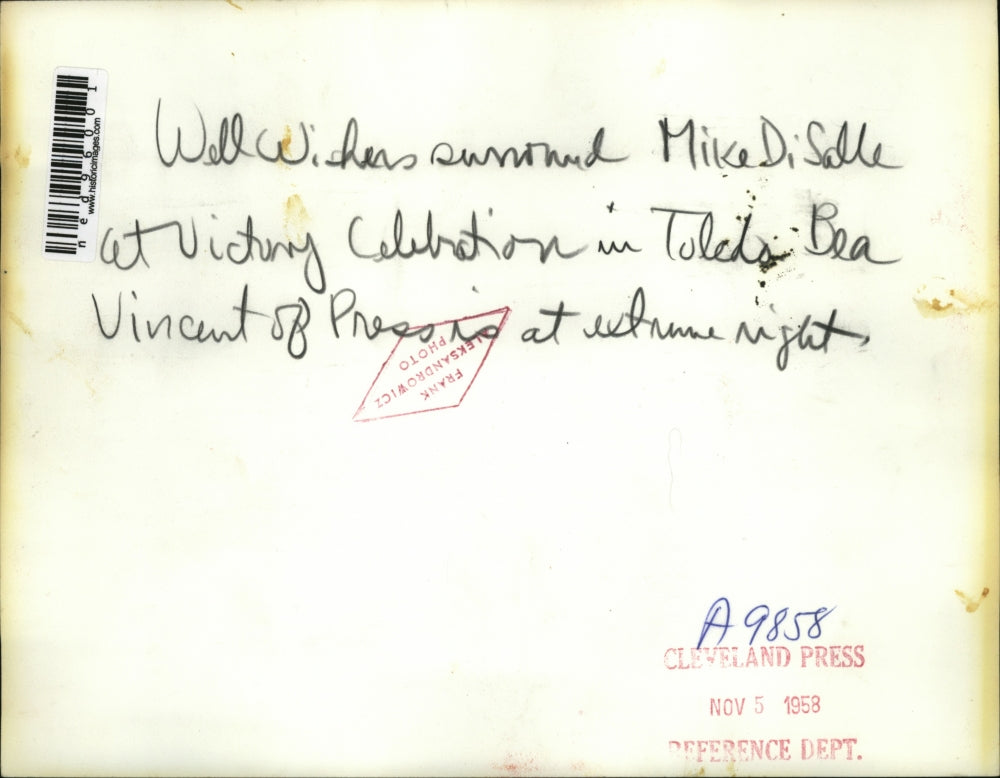 Well Wishers surround Mike DiSalle
at Victory Celebration in Toledo Bea
Vincent of Press is at extreme right.
FRANK
ALEKSANDROWICZ
PHOTO
ned96001
www.historicimages.com
A9858
CLEVELAND PRESS
NOV 5 1958
REFERENCE DEPT.